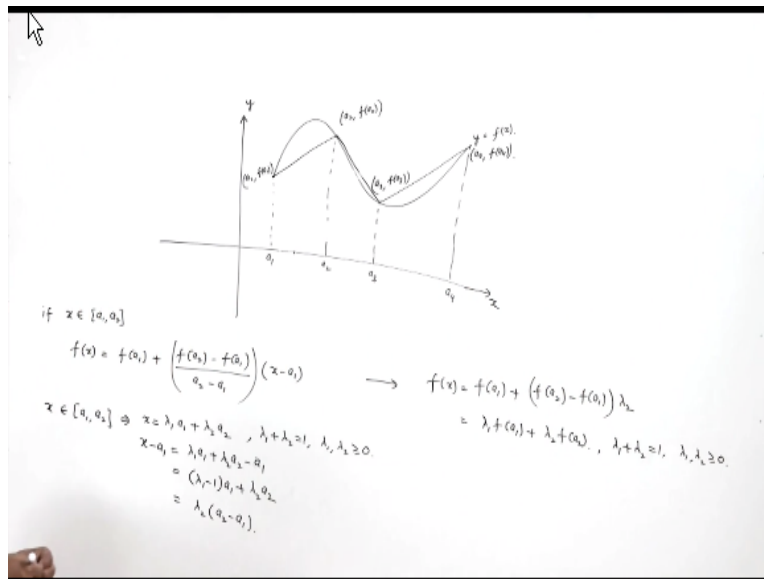 y
(a₂, f(a₂))
y = f(x).
(a₁, f(a₁))
(a₃, f(a₃))
(a₄, f(a₄)).
a₁
a₂
a₃
a₄
x
if x ∈ [a₁, a₂]
f(x) = f(a₁) + ( (f(a₂) - f(a₁)) / (a₂ - a₁) ) (x - a₁)
→ f(x) = f(a₁) + (f(a₂) - f(a₁)) λ₂
= λ₁f(a₁) + λ₂f(a₂)., λ₁+λ₂=1, λ₁,λ₂ ≥ 0.
x ∈ [a₁, a₂] ⇒ x = λ₁a₁ + λ₂a₂ , λ₁+λ₂=1, λ₁,λ₂ ≥ 0.
x - a₁ = λ₁a₁ + λ₂a₂ - a₁
= (λ₁-1)a₁ + λ₂a₂
= λ₂(a₂ - a₁).